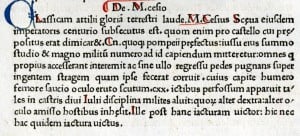 De. M. cesio
Classicam attilii gloria terrestri laude. M. Cesius Sceua eiusdem
imperatoris centurio subsecutus est. quom enim pro castello cui pre
positus erat dimicaret. Cn. quoq; pompei prefectus iustus eius summo
studio & magno militū numero ad id capiendum mitteretur: omnes qui
propius accesserant interemit ac sine ullo regressu pedes pugnans super
ingentem stragem quam ipse fecerat corruit. cuius capite humero
femore saucio oculo eruto scutum .cxx. ictibus perfossum apparuit ta
les in castris diui Iulii disciplina milites aluit: quoꝝ alter dextra: alter o
culo amisso hostibus inhesit. Ille post hanc iacturam uictor: hic nec
hac quidem iactura uictus.